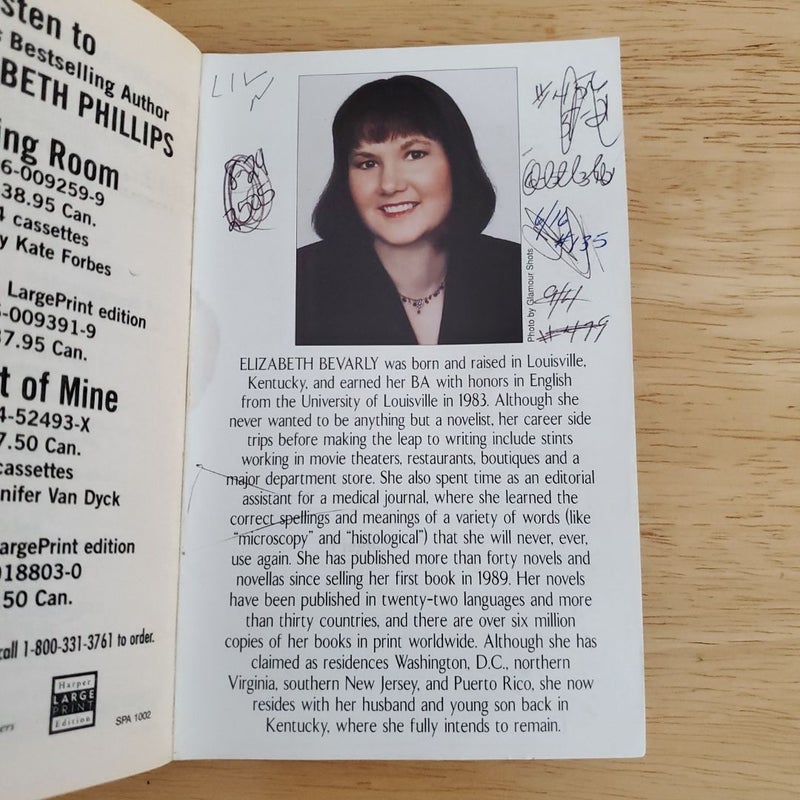 sten to
s Bestselling Author
BETH PHILLIPS
ing Room
6-009259-9
38.95 Can.
4 cassettes
y Kate Forbes
LargePrint edition
-009391-9
7.95 Can.
t of Mine
4-52493-X
7.50 Can.
cassettes
nnifer Van Dyck
argePrint edition
018803-0
50 Can.
call 1-800-331-3761 to order.
Harper
LARGE
PRINT
Edition
SPA 1002
ers
LIV
N
9/4
#479
Photo by Glamour Shots.
ELIZABETH BEVARLY was born and raised in Louisville,
Kentucky, and earned her BA with honors in English
from the University of Louisville in 1983. Although she
never wanted to be anything but a novelist, her career side
trips before making the leap to writing include stints
working in movie theaters, restaurants, boutiques and a
major department store. She also spent time as an editorial
assistant for a medical journal, where she learned the
correct spellings and meanings of a variety of words (like
"microscopy" and "histological") that she will never, ever,
use again. She has published more than forty novels and
novellas since selling her first book in 1989. Her novels
have been published in twenty-two languages and more
than thirty countries, and there are over six million
copies of her books in print worldwide. Although she has
claimed as residences Washington, D.C., northern
Virginia, southern New Jersey, and Puerto Rico, she now
resides with her husband and young son back in
Kentucky, where she fully intends to remain.